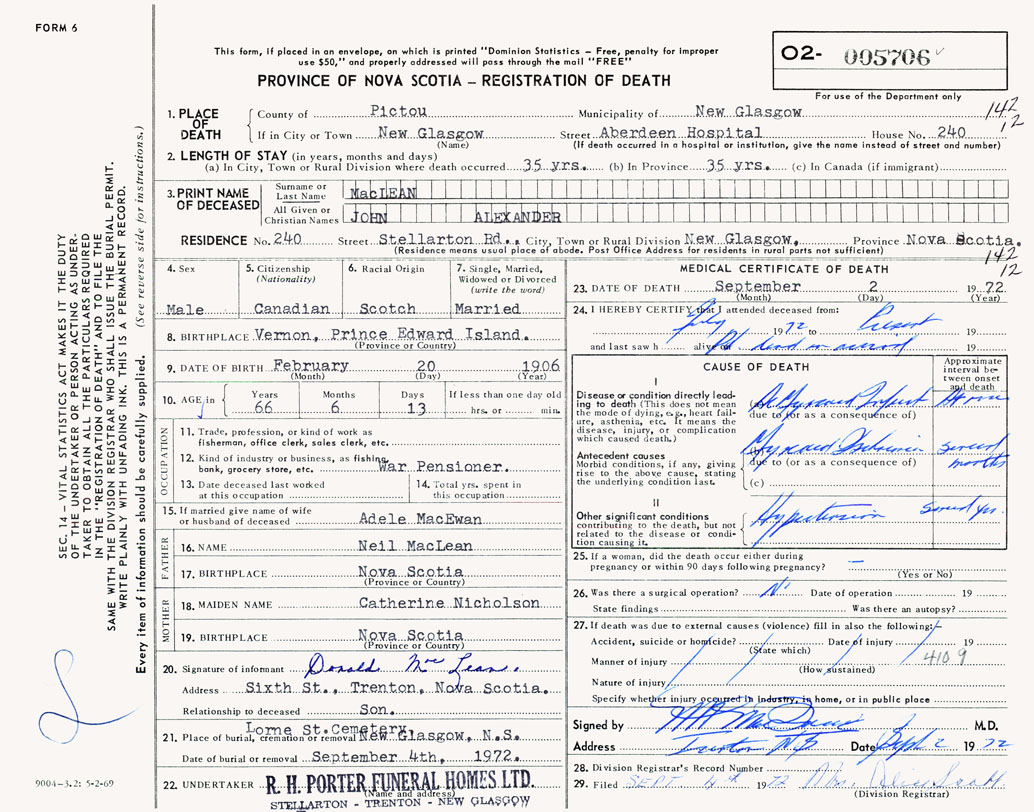 FORM 6
This form, if placed in an envelope, on which is printed "Dominion Statistics – Free, penalty for improper
use $50," and properly addressed will pass through the mail "FREE"
PROVINCE OF NOVA SCOTIA – REGISTRATION OF DEATH
O2- 005706
For use of the Department only
142
12
SEC. 14 – VITAL STATISTICS ACT MAKES IT THE DUTY
OF THE UNDERTAKER OR PERSON ACTING AS UNDER-
TAKER TO OBTAIN ALL THE PARTICULARS REQUIRED
IN THE "REGISTRATION OF DEATH" AND TO FILE THE
SAME WITH THE DIVISION REGISTRAR WHO SHALL ISSUE THE BURIAL PERMIT.
WRITE PLAINLY WITH UNFADING INK. THIS IS A PERMANENT RECORD.
Every item of information should be carefully supplied. (See reverse side for instructions.)
1. PLACE OF DEATH
County of Pictou Municipality of New Glasgow
If in City or Town New Glasgow Street Aberdeen Hospital House No. 240
(Name) (If death occurred in a hospital or institution, give the name instead of street and number)
2. LENGTH OF STAY (in years, months and days)
(a) In City, Town or Rural Division where death occurred 35 yrs. (b) In Province 35 yrs. (c) In Canada (if immigrant)
3. PRINT NAME OF DECEASED
Surname or Last Name MacLEAN
All Given or Christian Names JOHN ALEXANDER
RESIDENCE No. 240 Street Stellarton Rd., City, Town or Rural Division New Glasgow, Province Nova Scotia.
(Residence means usual place of abode. Post Office Address for residents in rural parts not sufficient)
142
12
4. Sex
Male
5. Citizenship
(Nationality)
Canadian
6. Racial Origin
Scotch
7. Single, Married,
Widowed or Divorced
(write the word)
Married
8. BIRTHPLACE Vernon, Prince Edward Island.
(Province or Country)
9. DATE OF BIRTH February 20 1906
(Month) (Day) (Year)
10. AGE in
Years Months Days If less than one day old
66 6 13 hrs. or min.
OCCUPATION
11. Trade, profession, or kind of work as
fisherman, office clerk, sales clerk, etc.
12. Kind of industry or business, as fishing,
bank, grocery store, etc. War Pensioner.
13. Date deceased last worked
at this occupation
14. Total yrs. spent in
this occupation
15. If married give name of wife
or husband of deceased Adele MacEwan
FATHER
16. NAME Neil MacLean
17. BIRTHPLACE Nova Scotia
(Province or Country)
MOTHER
18. MAIDEN NAME Catherine Nicholson
19. BIRTHPLACE Nova Scotia
(Province or Country)
20. Signature of informant Donald McLean.
Address Sixth St., Trenton, Nova Scotia.
Relationship to deceased Son.
21. Place of burial, cremation or removal Lorne St. Cemetery, New Glasgow, N.S.
Date of burial or removal September 4th, 1972.
22. UNDERTAKER R. H. PORTER FUNERAL HOMES LTD.
(Name and address)
STELLARTON - TRENTON - NEW GLASGOW
9004-3.2: 5-2-69
MEDICAL CERTIFICATE OF DEATH
23. DATE OF DEATH September 2 19 72
(Month) (Day) (Year)
24. I HEREBY CERTIFY that I attended deceased from:
July 19 72 to Present 19
and last saw h alive on dead on arrival 19
CAUSE OF DEATH
Approximate
interval be-
tween onset
and death
I
Disease or condition directly lead-
ing to death (This does not mean
the mode of dying, e.g., heart fail-
ure, asthenia, etc. It means the
disease, injury, or complication
which caused death.)
(a) Myocard Infarct
due to (or as a consequence of)
Antecedent causes
Morbid conditions, if any, giving
rise to the above cause, stating
the underlying condition last.
(b) Myocard Ischemia several months
due to (or as a consequence of)
(c)
II
Other significant conditions
contributing to the death, but not
related to the disease or condi-
tion causing it.
Hypertension several yrs.
25. If a woman, did the death occur either during
pregnancy or within 90 days following pregnancy? –
(Yes or No)
26. Was there a surgical operation? N Date of operation 19
State findings Was there an autopsy?
27. If death was due to external causes (violence) fill in also the following:–
Accident, suicide or homicide? Date of injury 19
(State which)
4109
Manner of injury
(How sustained)
Nature of injury
Specify whether injury occurred in industry, in home, or in public place
Signed by M.D.
Address Trenton N.S Date Sept 2 19 72
28. Division Registrar's Record Number
29. Filed SEPT 4th 19 72 Mrs.
(Division Registrar)